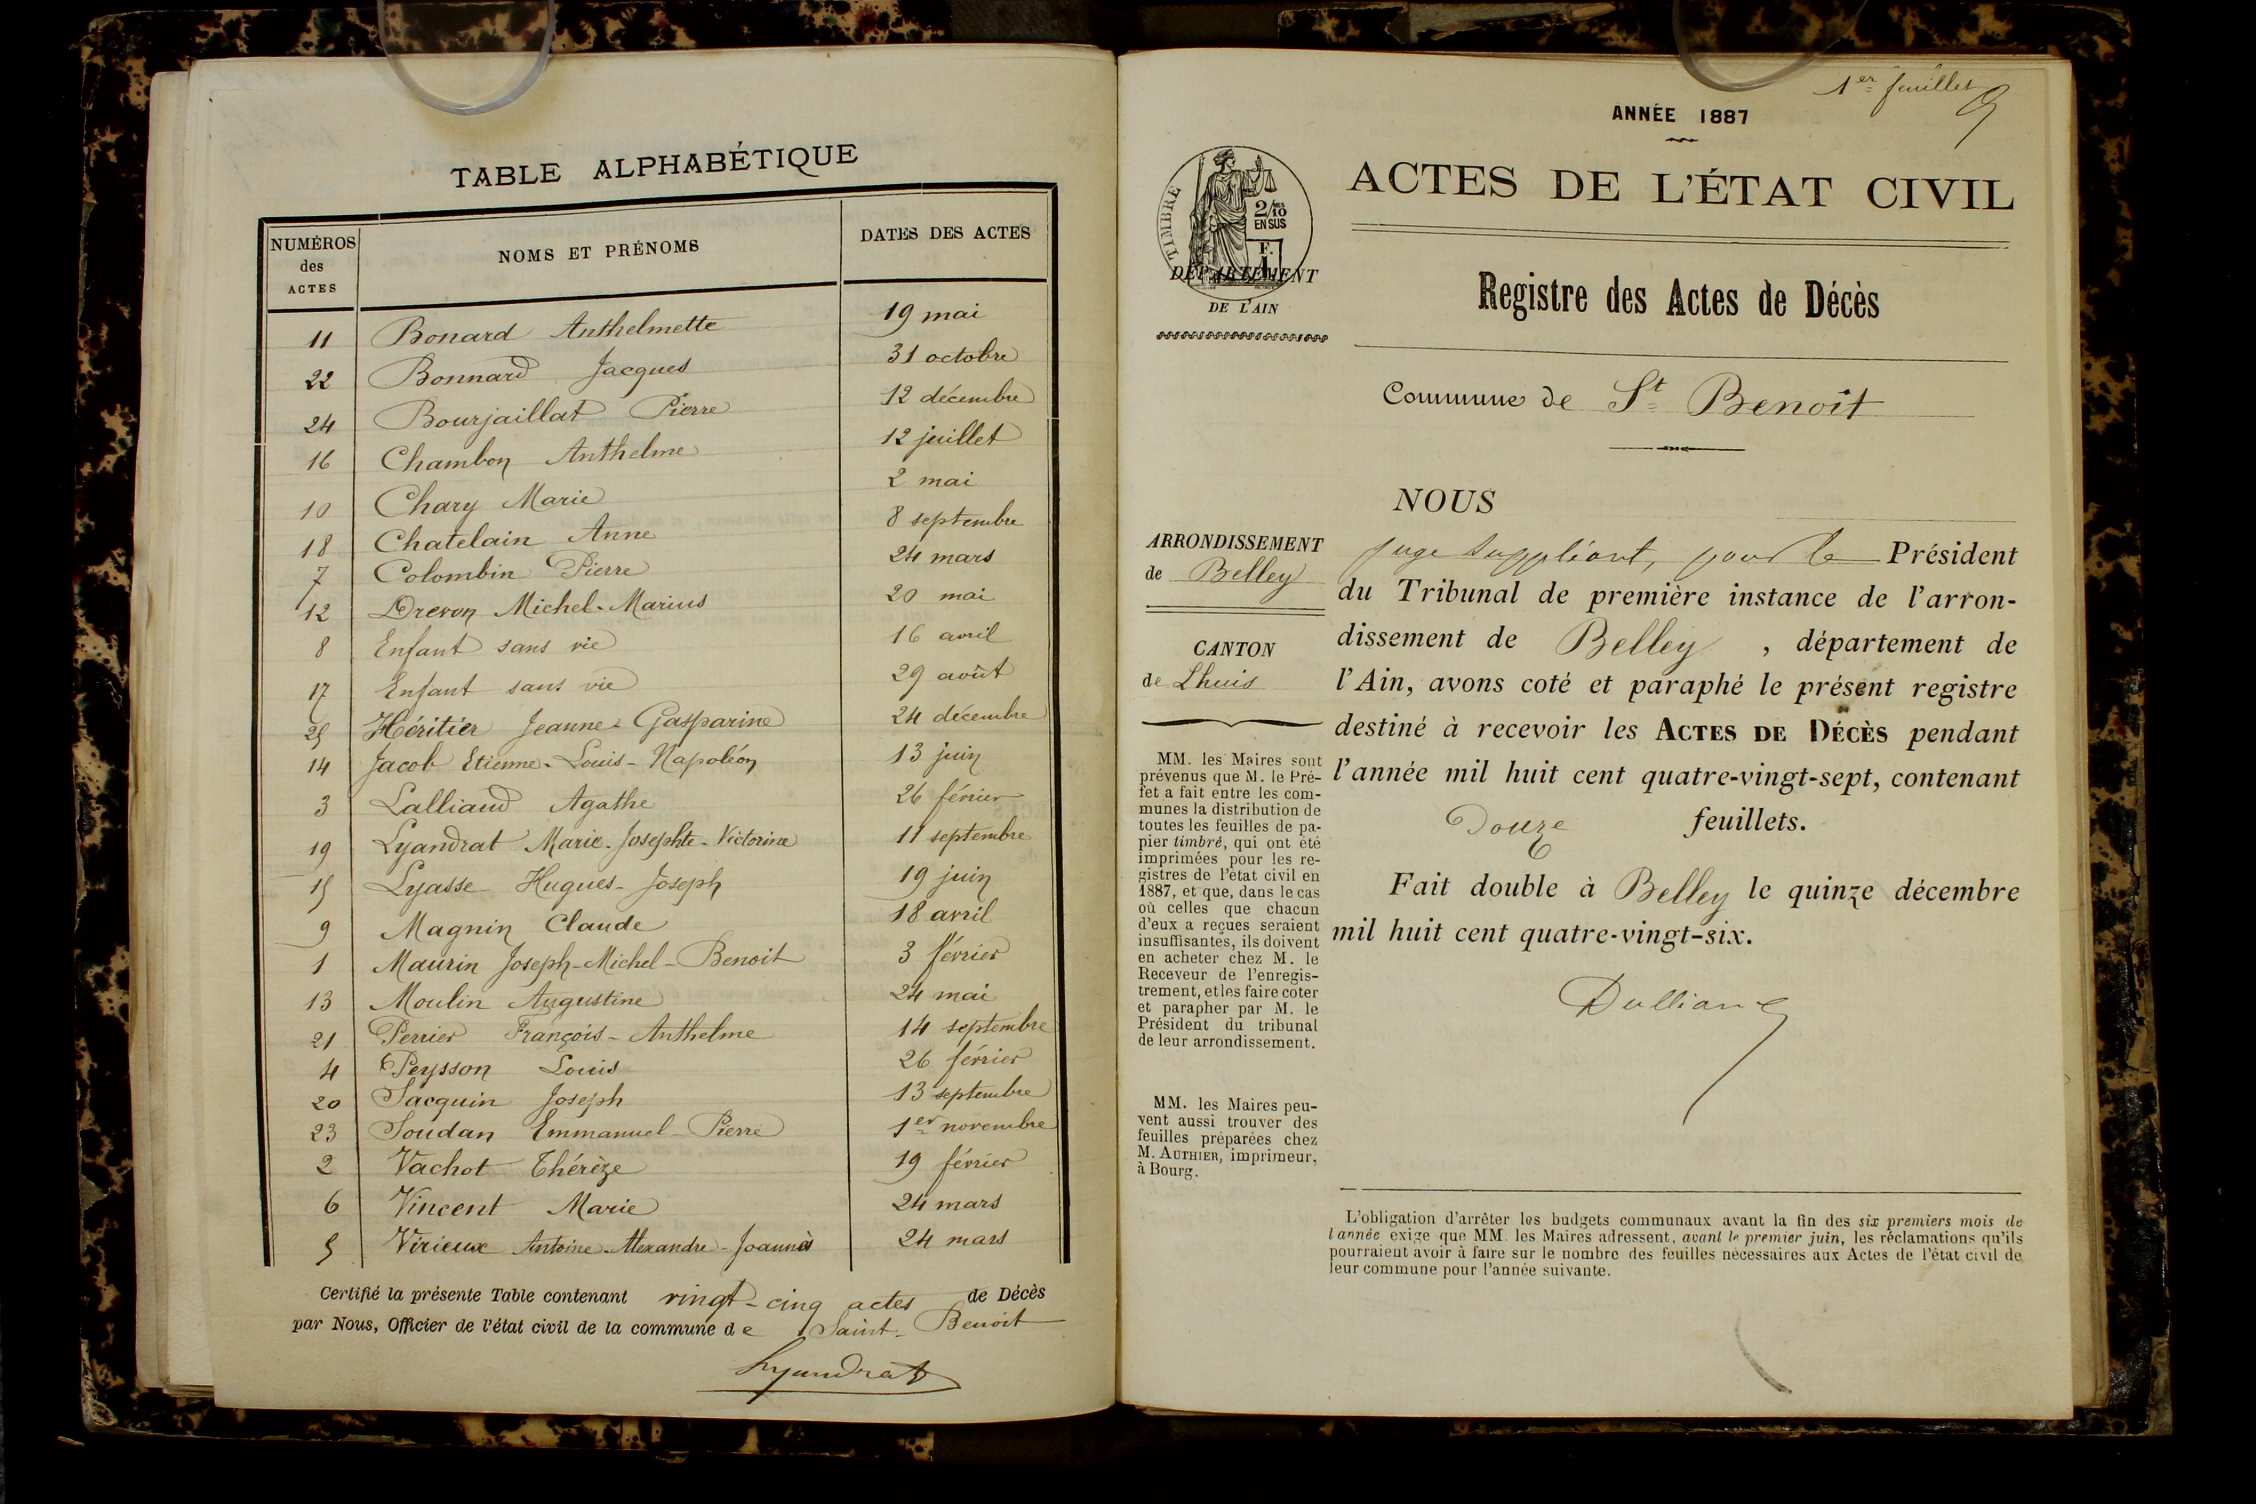 TABLE ALPHABÉTIQUE
NUMÉROS des ACTES
NOMS ET PRÉNOMS
DATES DES ACTES
11 Bonard Anthelmette 19 mai
22 Bonnard Jacques 31 octobre
24 Bourjaillat Pierre 12 décembre
16 Chambon Anthelme 12 juillet
10 Chary Marie 2 mai
18 Chatelain Anne 8 septembre
7 Colombin Pierre 24 mars
12 Drevon Michel-Marius 20 mai
8 Enfant sans vie 16 avril
17 Enfant sans vie 29 août
25 Héritier Jeanne-Gasparine 24 décembre
14 Jacob Etienne-Louis-Napoléon 13 juin
3 Lalliaud Agathe 26 février
19 Lyandrat Marie-Josephte-Victorine 11 septembre
15 Lyasse Hugues-Joseph 19 juin
9 Magnin Claude 18 avril
1 Maurin Joseph-Michel-Benoit 3 février
13 Moulin Augustine 24 mai
21 Perrier François-Anthelme 14 septembre
4 Peysson Louis 26 février
20 Sacquin Joseph 13 septembre
23 Soudan Emmanuel-Pierre 1er novembre
2 Vachot Thérèze 19 février
6 Vincent Marie 24 mars
5 Virieux Antoine-Alexandre-Joannès 24 mars
Certifié la présente Table contenant vingt-cinq actes de Décès
par Nous, Officier de l'état civil de la commune de Saint-Benoit
Lyandrat
1er feuillet
ANNÉE 1887
ACTES DE L'ÉTAT CIVIL
TIMBRE
2/10 EN SUS
F. 1
DÉPARTEMENT
DE L'AIN
Registre des Actes de Décès
Commune de St Benoit
ARRONDISSEMENT
de Belley
CANTON
de Lhuis
MM. les Maires sont
prévenus que M. le Pré-
fet a fait entre les com-
munes la distribution de
toutes les feuilles de pa-
pier timbré, qui ont été
imprimées pour les re-
gistres de l'état civil en
1887, et que, dans le cas
où celles que chacun
d'eux a reçues seraient
insuffisantes, ils doivent
en acheter chez M. le
Receveur de l'enregis-
trement, et les faire coter
et parapher par M. le
Président du tribunal
de leur arrondissement.
MM. les Maires peu-
vent aussi trouver des
feuilles préparées chez
M. AUTHIER, imprimeur,
à Bourg.
NOUS
juge suppléant, pour le Président
du Tribunal de première instance de l'arron-
dissement de Belley, département de
l'Ain, avons coté et paraphé le présent registre
destiné à recevoir les ACTES DE DÉCÈS pendant
l'année mil huit cent quatre-vingt-sept, contenant
Douze feuillets.
Fait double à Belley le quinze décembre
mil huit cent quatre-vingt-six.
L'obligation d'arrêter les budgets communaux avant la fin des six premiers mois de
l'année exige que MM. les Maires adressent, avant le premier juin, les réclamations qu'ils
pourraient avoir à faire sur le nombre des feuilles nécessaires aux Actes de l'état civil de
leur commune pour l'année suivante.